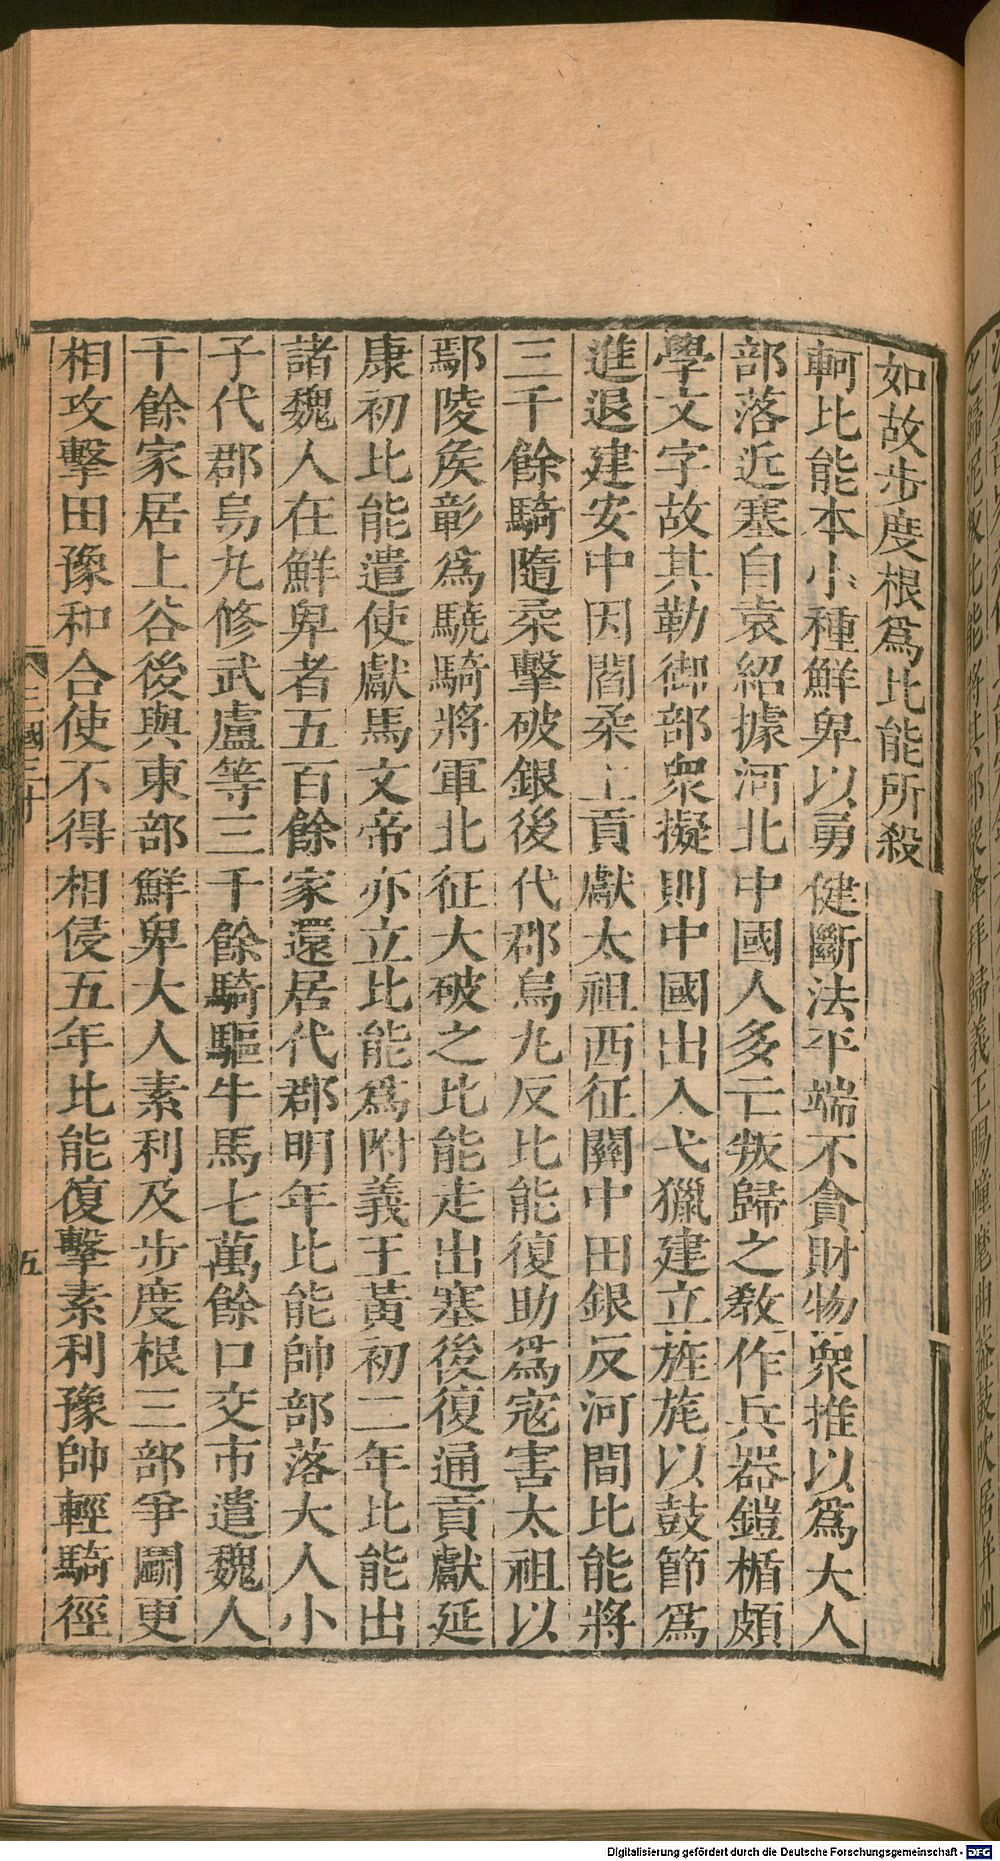 如故步度根爲比能所殺
軻比能本小種鮮卑以勇健斷法平端不貪財物衆推以爲大人
部落近塞自袁紹據河北中國人多亡叛歸之敎作兵器鎧楯頗
學文字故其勒御部衆擬則中國出入弋獵建立旌旄以鼓節爲
進退建安中因閻柔上貢獻太祖西征關中田銀反河間比能將
三千餘騎隨柔擊破銀後代郡烏丸反比能復助爲寇害太祖以
鄢陵矦彰爲驍騎將軍北征大破之比能走出塞後復通貢獻延
康初比能遣使獻馬文帝亦立比能爲附義王黃初二年比能出
諸魏人在鮮卑者五百餘家還居代郡明年比能帥部落大人小
子代郡烏丸修武盧等三千餘騎驅牛馬七萬餘口交市遣魏人
千餘家居上谷後與東部鮮卑大人素利及步度根三部爭鬭更
相攻擊田豫和合使不得相侵五年比能復擊素利豫帥輕騎徑
三國三十
五
Digitalisierung gefördert durch die Deutsche Forschungsgemeinschaft - DFG